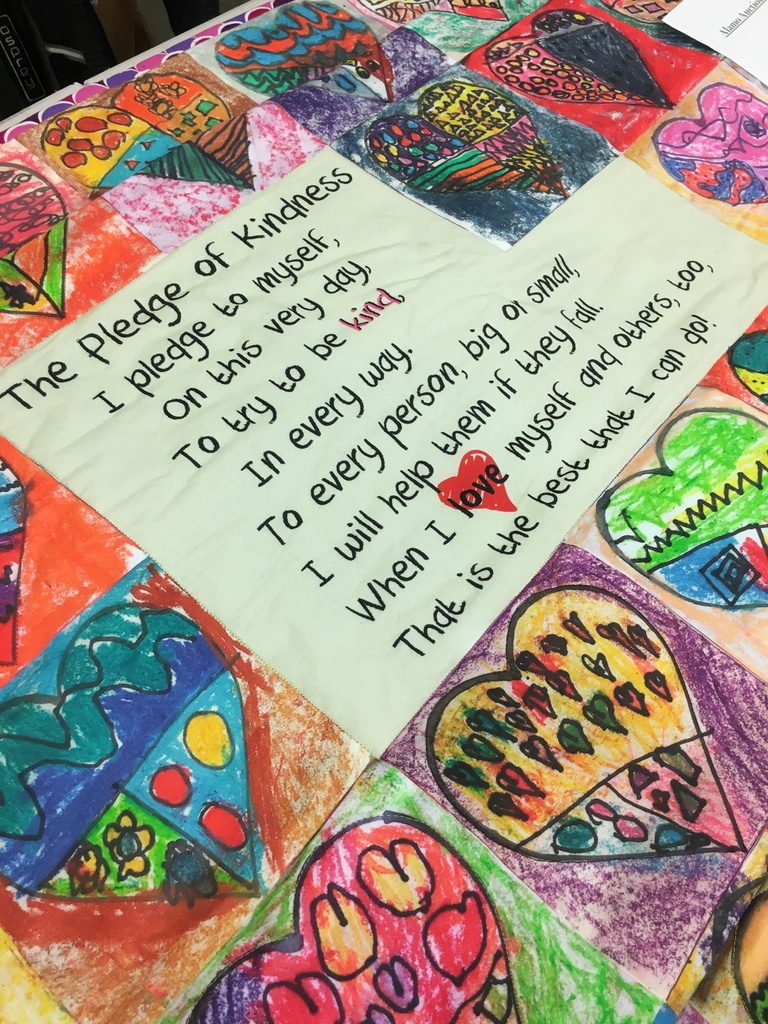 The Pledge of Kindness
I pledge to myself,
On this very day,
To try to be kind,
In every way.
To every person, big or small,
I will help them if they fall.
When I love myself and others, too,
That is the best that I can do!
Alamo Auction